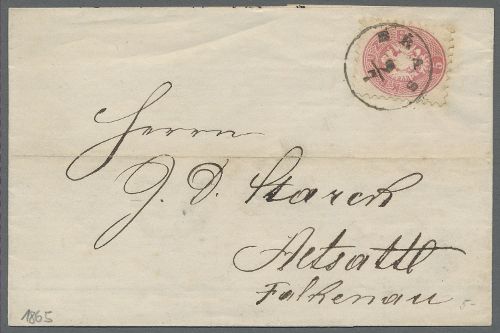 5
Herrn
J. D. Starck
Altsattl
Falkenau
1865
5-